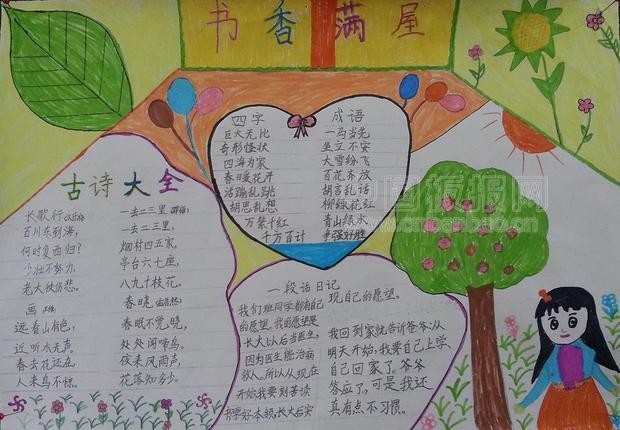 书香满屋
古诗大全
长歌行
百川东到海，
何时复西归？
少壮不努力，
老大徒伤悲。
画
远看山有色，
近听水无声。
春去花还在
人来鸟不惊。
一去二三里
一去二三里，
烟村四五家，
亭台六七座，
八九十枝花。
春晓
春眠不觉晓，
处处闻啼鸟，
夜来风雨声，
花落知多少。
四字 成语
巨大无比
奇形怪状
四海为家
春暖花开
活蹦乱跳
胡思乱想
万紫千红
千方百计
一马当先
坐立不安
大雪纷飞
百花齐放
胡言乱语
柳绿花红
青山绿水
争强好胜
一段话日记
我们班同学都有自己
的愿望。我的愿望是
长大以后当医生，
因为医生能治病
救人。所以从现在
开始我要刻苦读
书学好本领，长大后实
现自己的愿望。
我回到家就告诉爷爷：从
明天开始，我要自己上学
自己回家了。爷爷
答应了，可是我还
真有点不习惯。
中国板报网
www.cnbanbao.cn